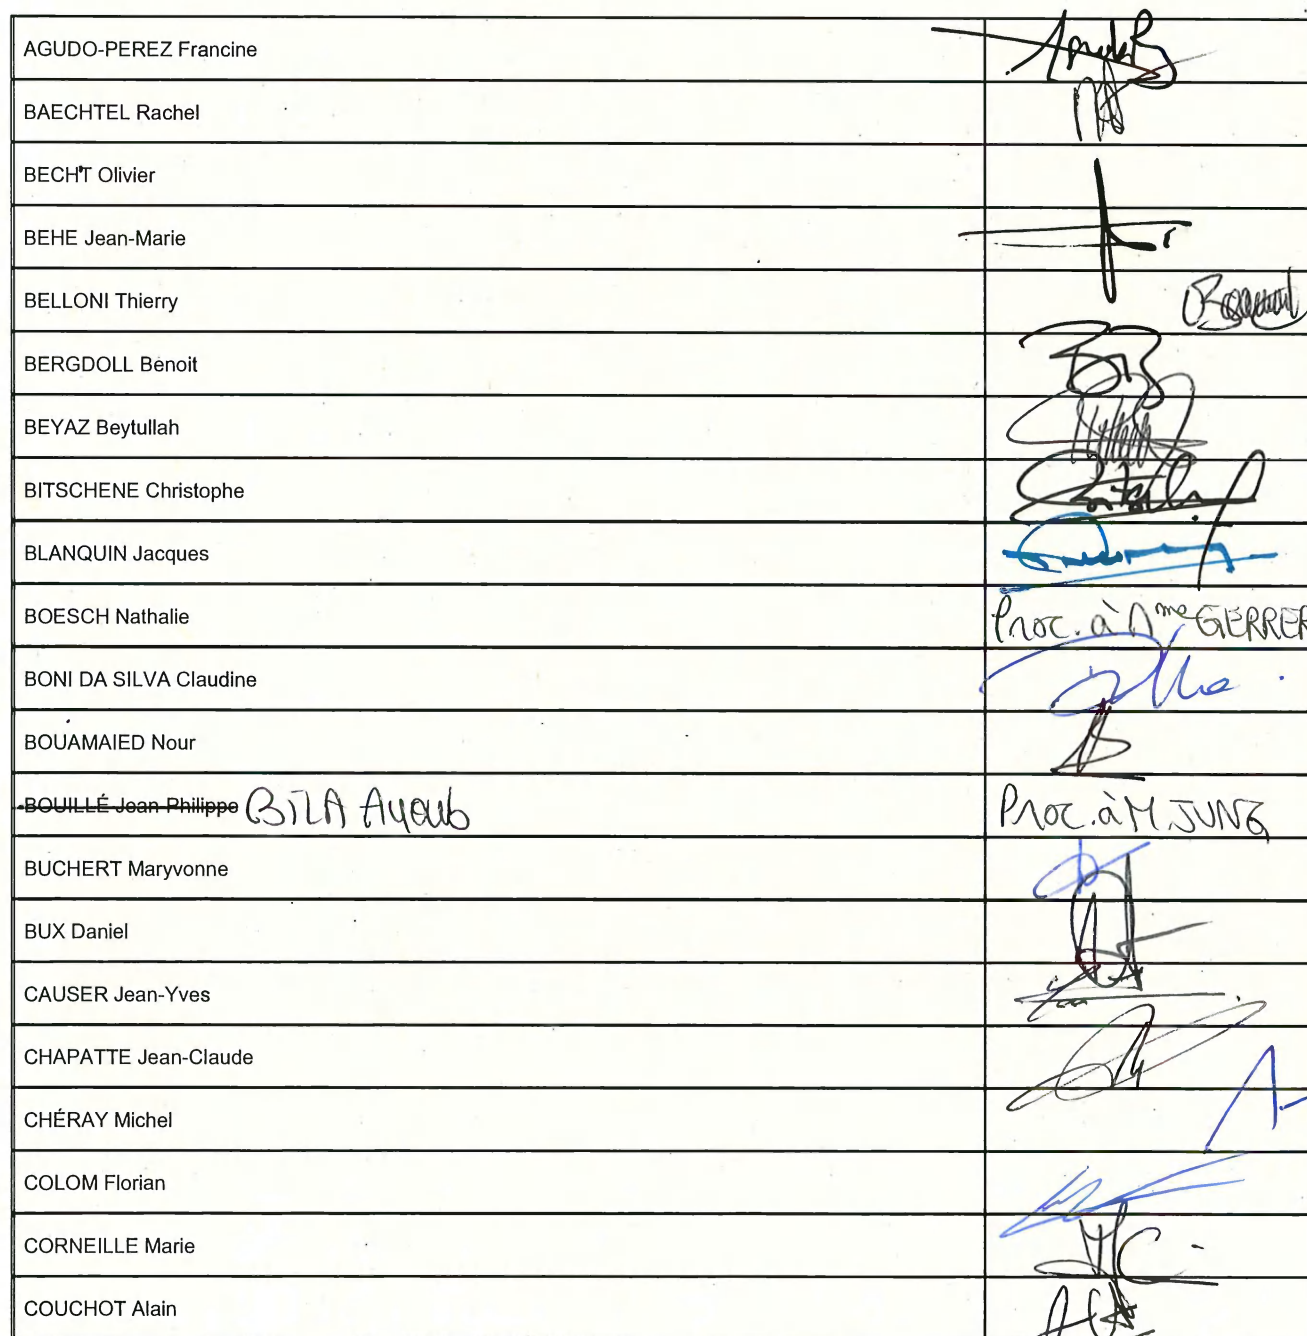 AGUDO-PEREZ Francine
BAECHTEL Rachel
BECHT Olivier
BEHE Jean-Marie
BELLONI Thierry
BERGDOLL Benoit
BEYAZ Beytullah
BITSCHENE Christophe
BLANQUIN Jacques
BOESCH Nathalie Proc. à Mme GERRER
BONI DA SILVA Claudine
BOUAMAIED Nour
BOUILLÉ Jean-Philippe BILA Ayoub Proc. à M JUNG
BUCHERT Maryvonne
BUX Daniel
CAUSER Jean-Yves
CHAPATTE Jean-Claude
CHÉRAY Michel
COLOM Florian
CORNEILLE Marie
COUCHOT Alain